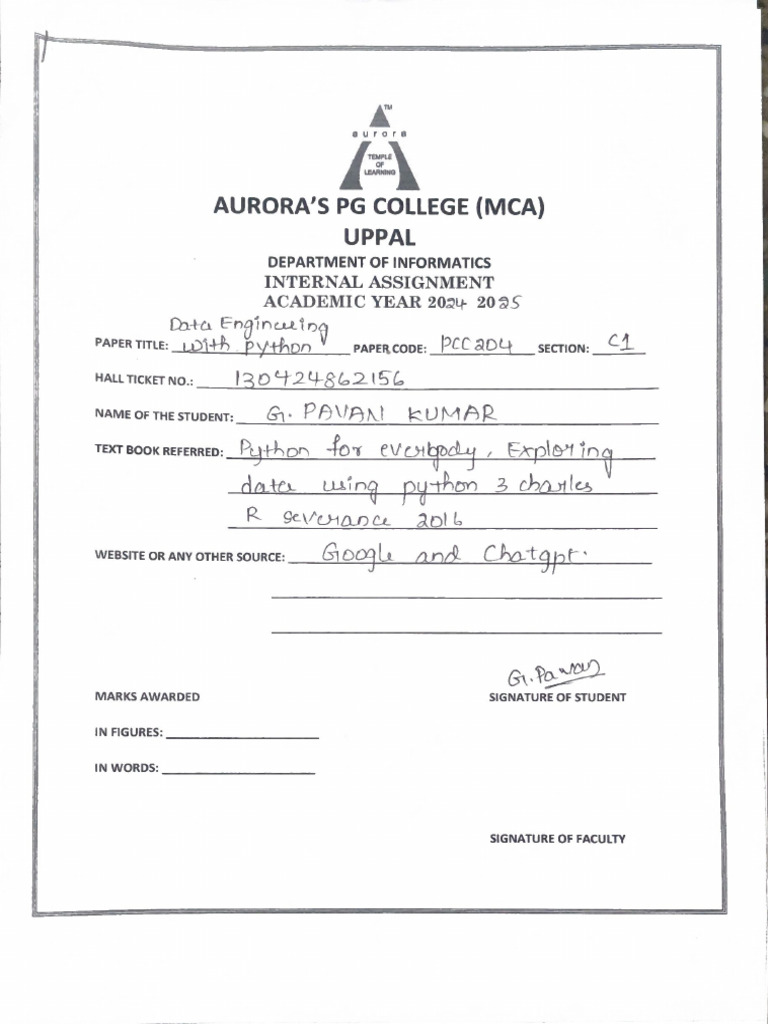 TM
aurora
TEMPLE
OF
LEARNING
AURORA'S PG COLLEGE (MCA)
UPPAL
DEPARTMENT OF INFORMATICS
INTERNAL ASSIGNMENT
ACADEMIC YEAR 2024 2025
Data Engineering
PAPER TITLE: with python PAPER CODE: PCC204 SECTION: C1
HALL TICKET NO.: 130424862156
NAME OF THE STUDENT: G. PAVAN KUMAR
TEXT BOOK REFERRED: Python for everbody, Exploring
data using python 3 charles
R severance 2016
WEBSITE OR ANY OTHER SOURCE: Google and Chatgpt.
G. Pavan
MARKS AWARDED SIGNATURE OF STUDENT
IN FIGURES:
IN WORDS:
SIGNATURE OF FACULTY